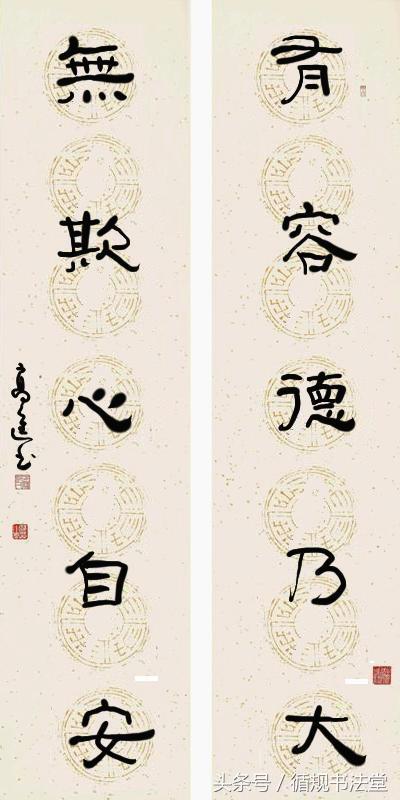 有容德乃大
無欺心自安
头条号 / 循规书法堂